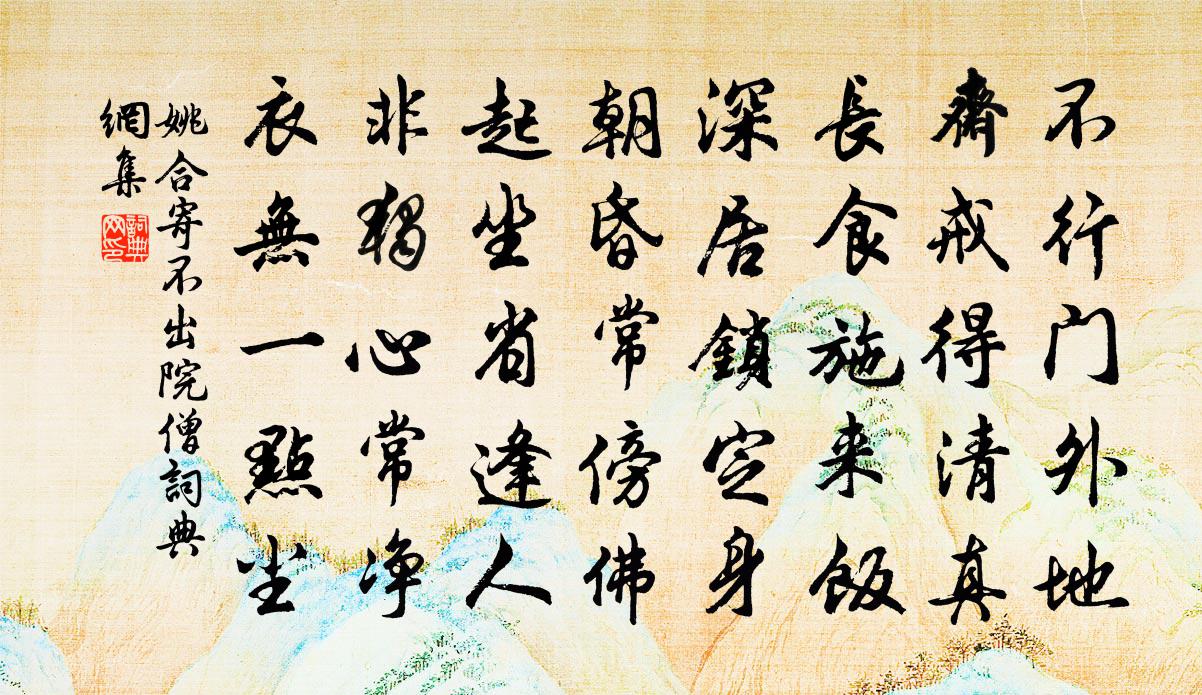 不行门外地
齋戒得清真
長食施来飯
深居鎖定身
朝昏常傍佛
起坐省逢人
非獨心常净
衣無一點尘
姚合寄不出院僧詞典
網集
詞典網印